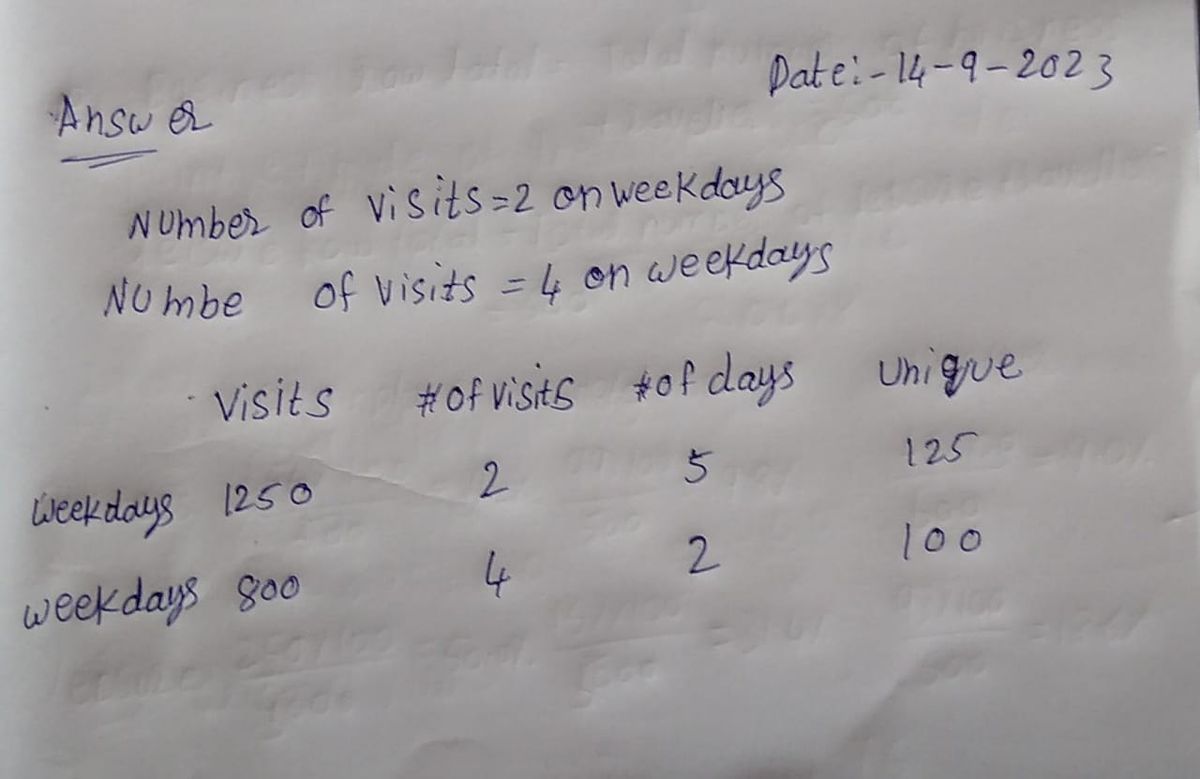 Date:-14-9-2023
Answer
Number of visits=2 on weekdays
Numbe of visits = 4 on weekdays
Visits #of visits #of days Unique
weekdays 1250 2 5 125
weekdays 800 4 2 100